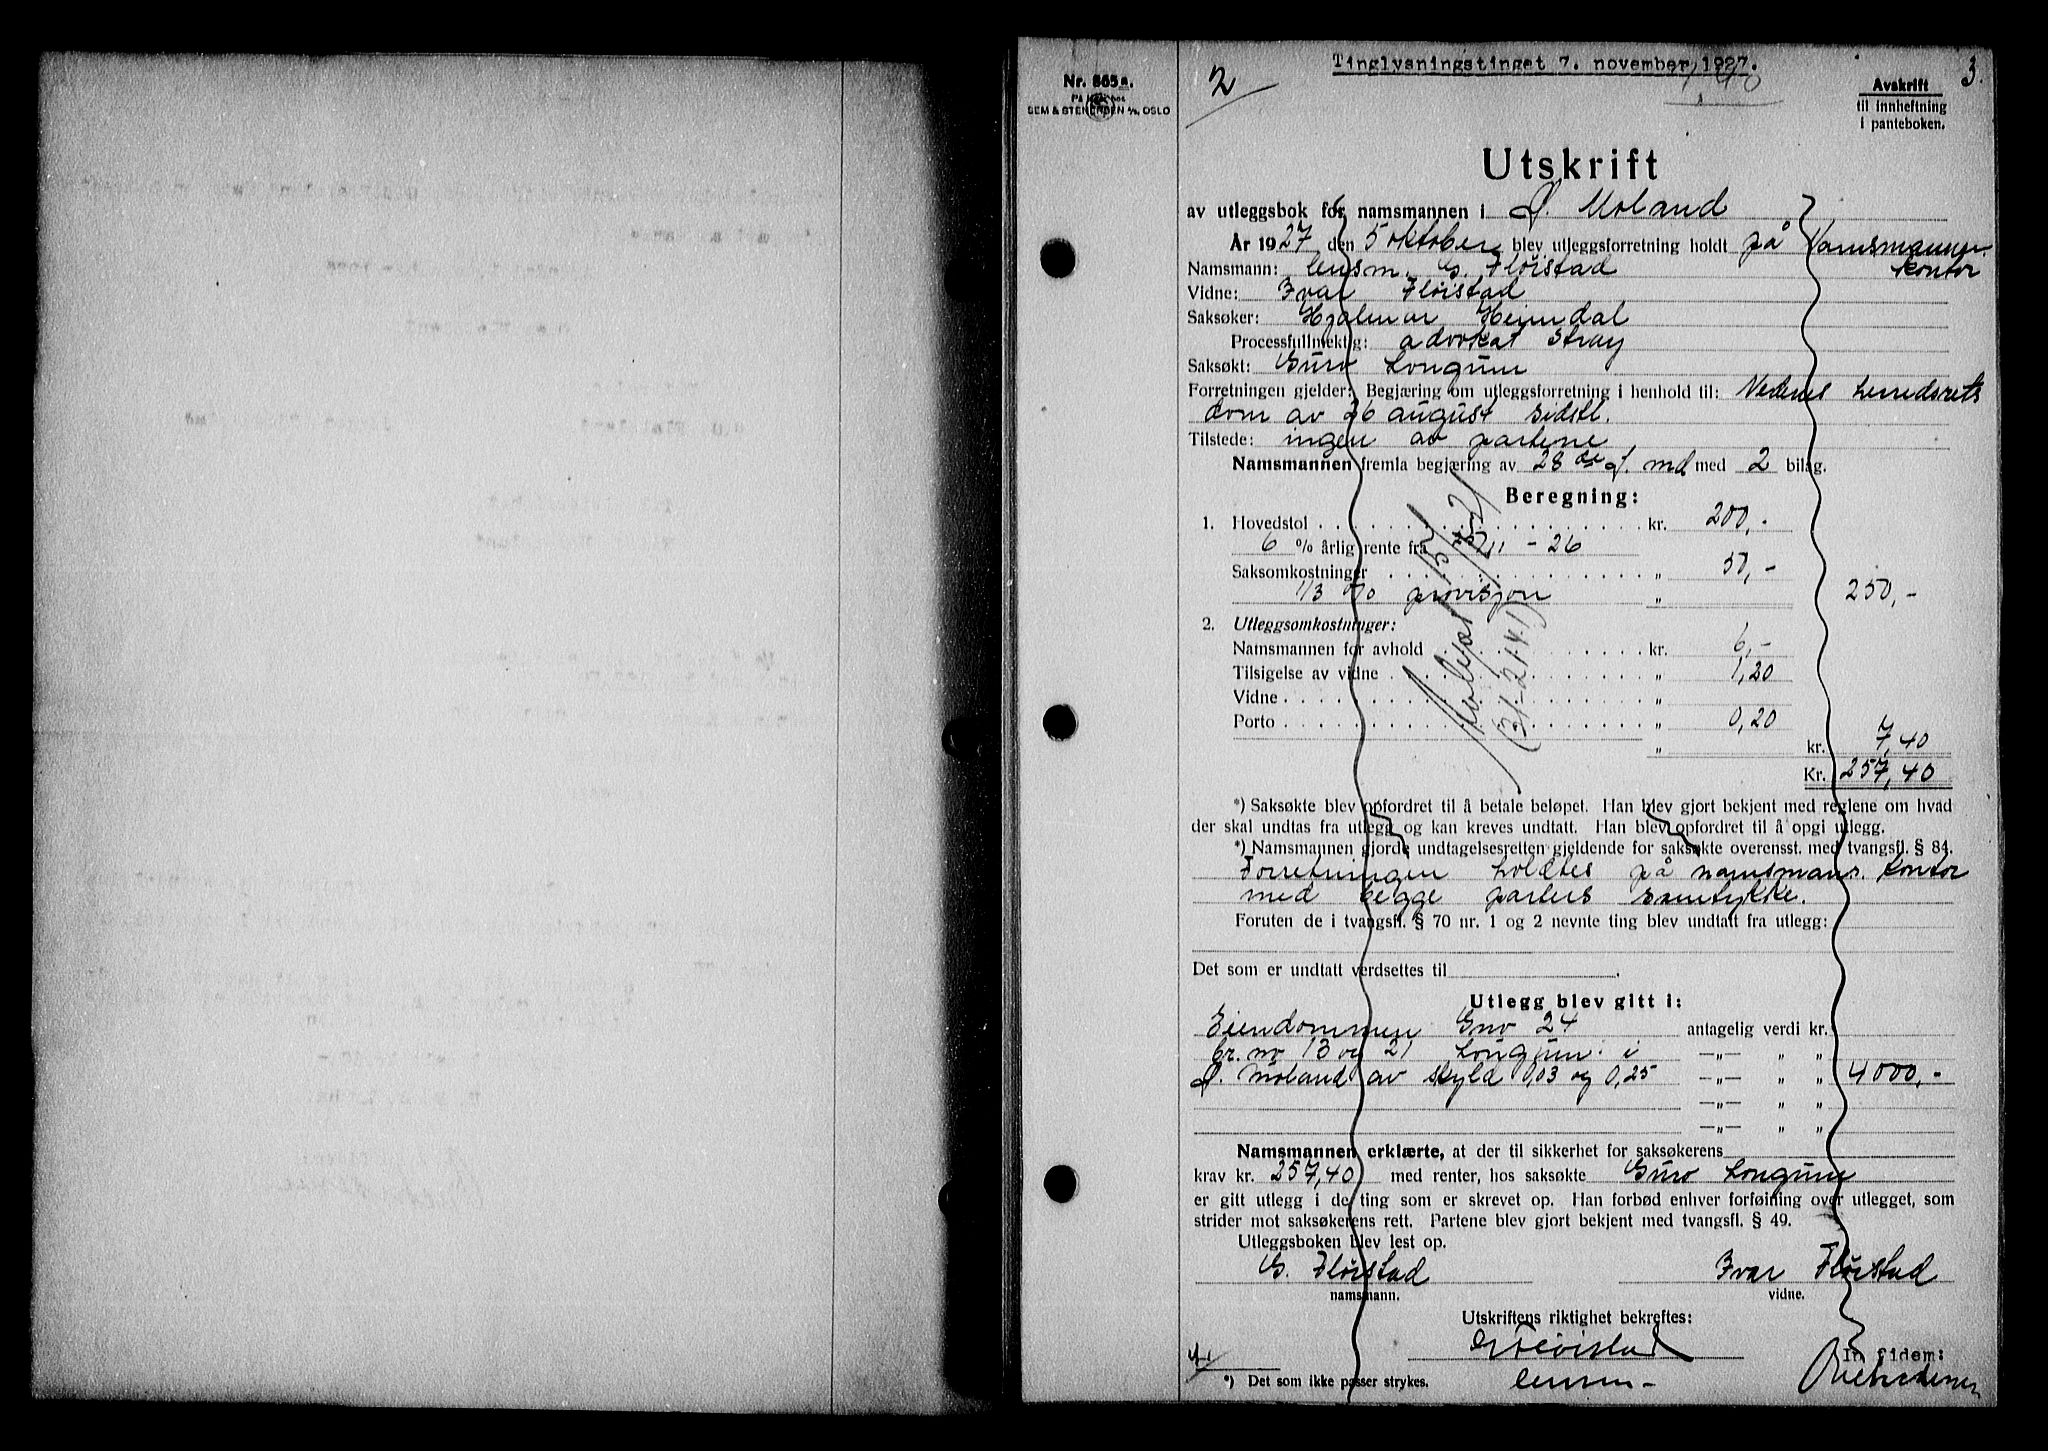 Tinglysningstinget 7. november 1927.
2
3.
Nr. 865a.
SEM & STENERSEN A/S, OSLO
Avskrift
til innheftning
i panteboken.
Utskrift
av utleggsbok for namsmannen i Ø. Moland
År 1927 den 5 oktober blev utleggsforretning holdt på Namsmannens
kontor
Namsmann: lensm. G. Fløistad
Vidne: Ivar Fløistad
Saksøker: Hjalmar Heimdal
Processfullmektig: advokat Stray
Saksøkt: Guro Longum
Forretningen gjelder: Begjæring om utleggsforretning i henhold til: Nedenes herredsretts
dom av 26 august sidstl.
Tilstede: ingen av partene
Namsmannen fremla begjæring av 28 de f. md med 2 bilag.
Beregning:
1. Hovedstol kr. 200,-
6 % årlig rente fra 15/11 - 26
Saksomkostninger " 50,-
1/3 % provisjon " 250,-
2. Utleggsomkostninger:
Namsmannen for avhold kr. 6,-
Tilsigelse av vidne " 1,20
Vidne "
Porto " 0,20
" kr. 7,40
Kr. 257,40
*) Saksøkte blev opfordret til å betale beløpet. Han blev gjort bekjent med reglene om hvad
der skal undtas fra utlegg og kan kreves undtatt. Han blev opfordret til å opgi utlegg.
*) Namsmannen gjorde undtagelsesretten gjeldende for saksøkte overensst. med tvangsfl. § 84.
Forretningen holdtes på namsmans. kontor
med begge parters samtykke.
Foruten de i tvangsfl. § 70 nr. 1 og 2 nevnte ting blev undtatt fra utlegg:
Det som er undtatt verdsettes til
Utlegg blev gitt i:
Eiendommen Gno 24 antagelig verdi kr.
br. no 13 og 21 Longum i —„— " "
Ø. Moland av skyld 0,03 og 0,25 —„— " " 4000,-
—„— " "
—„— " "
Namsmannen erklærte, at der til sikkerhet for saksøkerens
krav kr. 257,40 med renter, hos saksøkte Guro Longum
er gitt utlegg i de ting som er skrevet op. Han forbød enhver forføining over utlegget, som
strider mot saksøkerens rett. Partene blev gjort bekjent med tvangsfl. § 49.
Utleggsboken blev lest op.
G. Fløistad Ivar Fløistad
namsmann. vidne.
Utskriftens riktighet bekreftes:
G Fløistad
lensm-
In fidem:
*) Det som ikke passer strykes.